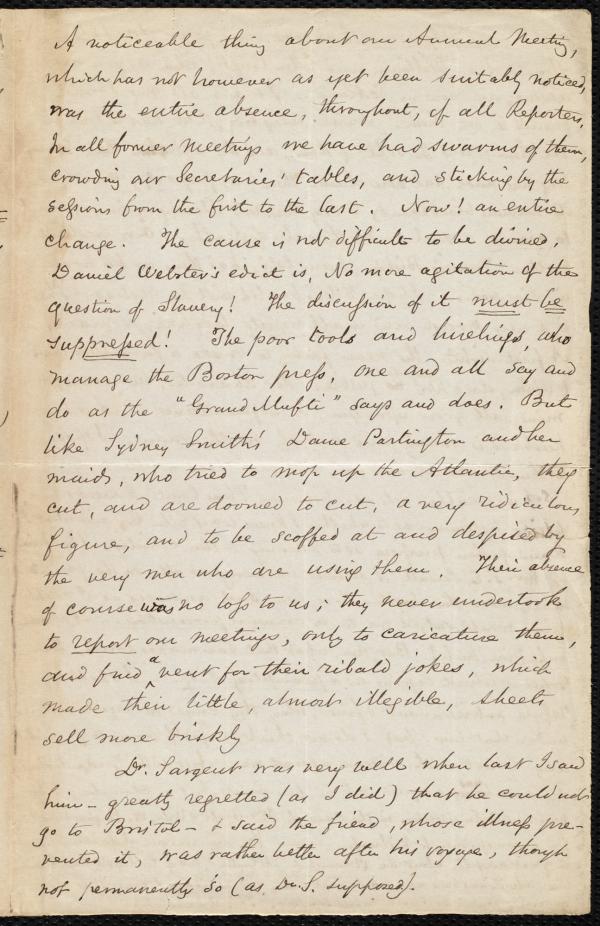 A noticeable thing about our Annual Meeting,
which has not however as yet been suitably noticed,
was the entire absence, throughout, of all Reporters.
In all former meetings we have had swarms of them,
crowding our Secretaries' tables, and sticking by the
sessions from the first to the last. Now! an entire
change. The cause is not difficult to be divined.
Daniel Webster's edict is, No more agitation of the
question of Slavery! The discussion of it must be
suppressed! The poor tools and hirelings, who
manage the Boston press, one and all say and
do as the "Grand Mufti" says and does. But
like Sydney Smith's Dame Partington and her
maids, who tried to mop up the Atlantic, they
cut, and are doomed to cut, a very ridiculous
figure, and to be scoffed at and despised by
the very men who are using them. Their absence
of course was no loss to us; they never undertook
to report our meetings, only to caricature them,
and find a vent for their ribald jokes, which
made their little, almost illegible, sheets
sell more briskly
Dr. Sargent was very well when last I saw
him – greatly regretted (as I did) that he could not
go to Bristol – & said the friend, whose illness pre-
vented it, was rather better after his voyage, though
not permanently so (as Dr. S. supposed).